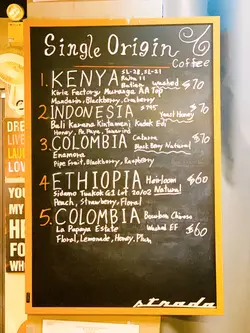 Single Origin
Coffee
1. KENYA SL-28, SL-34
Ruiru 11
Batian washed $70
Kirie Factory, Muranga AA Top
Mandarin, Blackberry, Cranberry
2. INDONESIA S795 Yeast Honey $70
Bali Kamara Kintamani Kadek Edi
Honey, Papaya, Tamarind
3. COLOMBIA Caturra
Black Berry Natural $70
Enamora
Pipe Fruit, Blackberry, Raspberry
4. ETHIOPIA Heirloom
Natural $60
Sidamo G1 Lot 20/02
Peach, Strawberry, Floral
5. COLOMBIA Bourbon Chiroso
La Papaya Estate Washed EF $60
Floral, Lemonade, Honey, Plum
strada
DRE
LIVE
LAU
LOVE
YOU
MY
HE
FOR